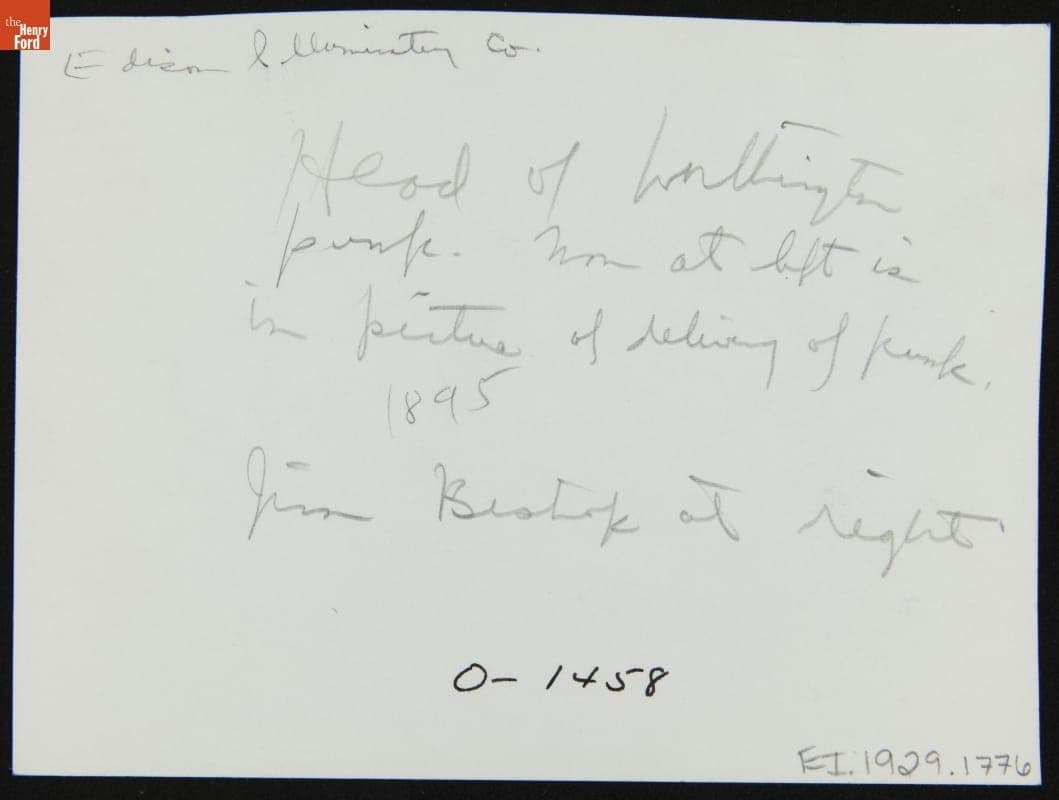 the
Henry
Ford
Edison Illuminating Co.
Head of Worthington
pump. Man at left is
in picture of delivery of pump.
1895
Jim Bishop at right
O-1458
EI.1929.1776